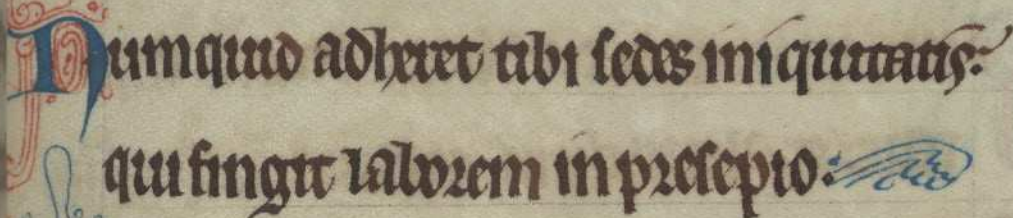 Numquid adheret tibi sedes iniquitatis:
qui fingit laborem in presepto: